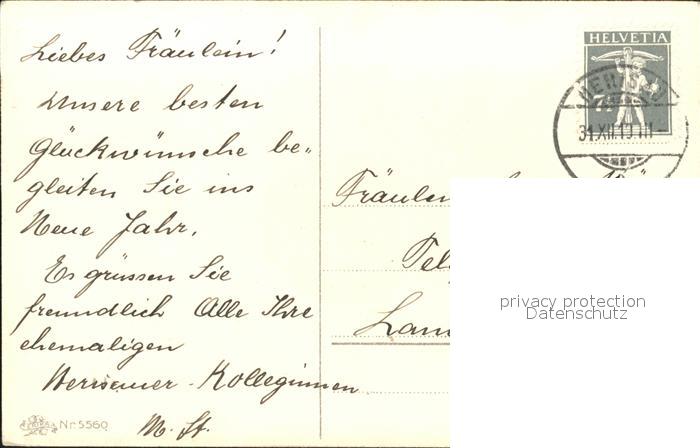 Liebes Fräulein!
Unsere besten
Glückwünsche be-
gleiten Sie ins
Neue Jahr.
Es grüssen Sie
freundlich Alle Ihre
ehemaligen
Herisauer-Kolleginnen
M. St.
Nr. 5560
HELVETIA
7½
HERISAU
31.XII.19 III-
Fräulein
Tele
Lan
privacy protection
Datenschutz